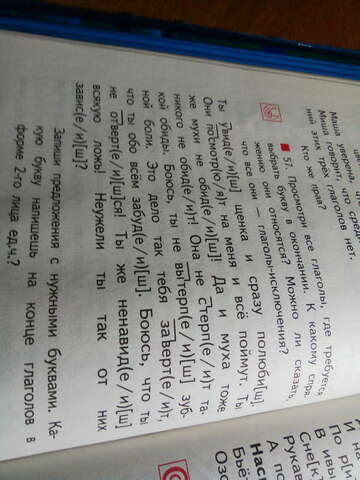 Маша уверена, что
Миша говорит, что средь
ний этих трёх глаголов нет.
Кто же прав?
57. Просмотри все глаголы, где требуется
выбрать букву в окончании. К какому спря-
жению они относятся? Можно ли сказать,
что все они — глаголы-исключения?
Ты увид(е/и)[ш] щенка и сразу полюби[ш].
Они посмотр(ю/я)т на меня и всё поймут. Ты
же мухи не обид(е/и)[ш]! Да и муха тоже
никого не обид(е/и)т! Она не стерп(е/и)т та-
кой обиды. Боюсь, ты не вытерп(е/и)[ш] зуб-
ной боли. Это дело так тебя заверт(е/и)т,
что ты обо всём забуд(е/и)[ш]. Боюсь, что ты
не отверт(е/и)[ш]ся! Ты же ненавид(е/и)[ш]
всякую ложь! Неужели ты так от них
завис(е/и)[ш]?
Запиши предложения с нужными буквами. Ка-
кую букву напишешь на конце глаголов в
форме 2-го лица ед.ч.?
И на
По р[и
В ивы
Сне[к]
Рукав
А по
Нас
Бьё
Озо